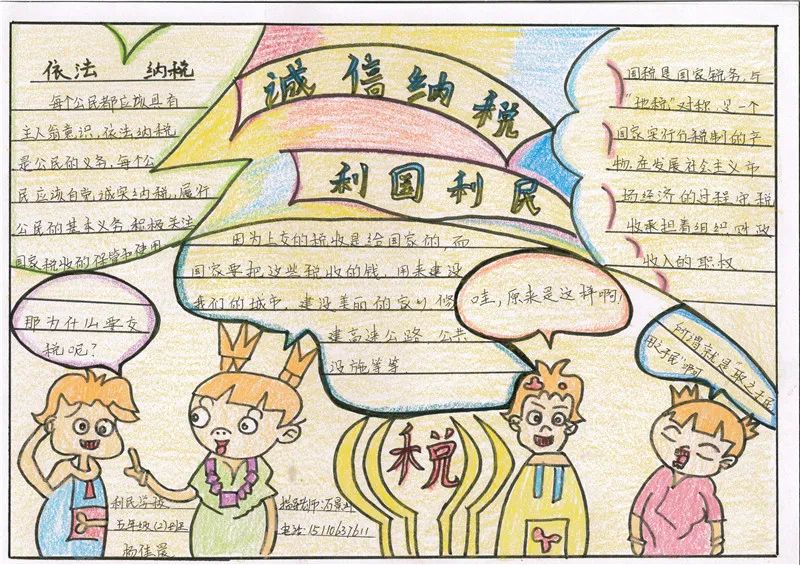 诚信纳税
利国利民
依法 纳税
每个公民都应该具有
主人翁意识,依法纳税
是公民的义务,每个公
民应该自觉,诚实纳税,履行
公民的基本义务 积极关注
国家税收的保管和使用
国税是国家税务,与
"地税"对称,是一个
国家实行分税制的产
物,在发展社会主义市
场经济的过程中税
收承担着组织 财政
收入的职权
那为什么要交
税呢?
因为上交的税收是给国家的,而
国家要把这些税收的钱,用来建设
我们的城市,建设美丽的家乡 修
建高速公路 公共
设施等等
哇,原来是这样啊!
所谓就是"取之于民
用之于民"啊
税
利民学校
五年级(2)班
杨佳晨
指导老师:石
电话:15110637611